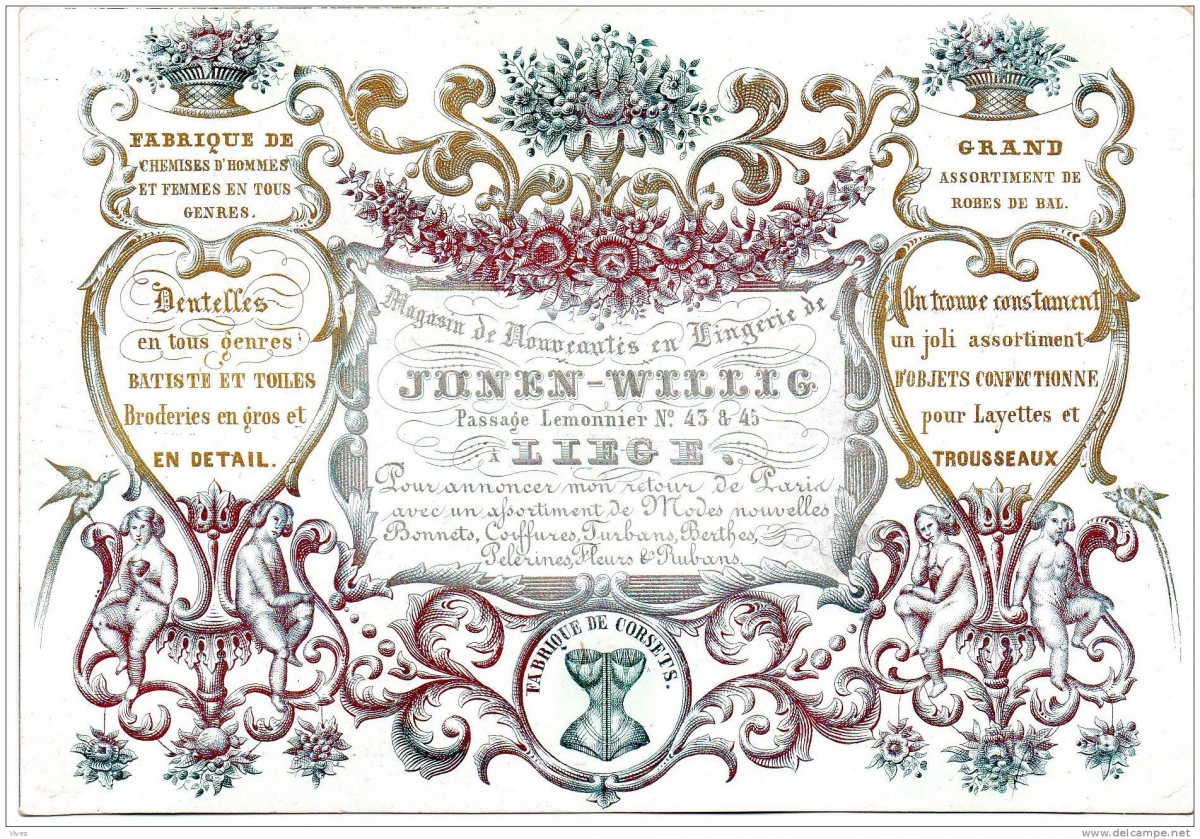 FABRIQUE DE
CHEMISES D'HOMMES
ET FEMMES EN TOUS
GENRES.
Dentelles
en tous genres
BATISTE ET TOILES
Broderies en gros et
EN DETAIL.
Magasin de Nouveautés en Lingerie de
JUNEN-WILLIG
Passage Lemonnier No. 43 & 45
À LIEGE.
Pour annoncer mon retour de Paris
avec un assortiment de Modes nouvelles
Bonnets, Coiffures, Turbans, Berthes,
Pelérines, Fleurs & Rubans.
GRAND
ASSORTIMENT DE
ROBES DE BAL.
On trouve constament
un joli assortiment
D'OBJETS CONFECTIONNE
pour Layettes et
TROUSSEAUX
FABRIQUE DE CORSETS.
Vives
www.delcampe.net